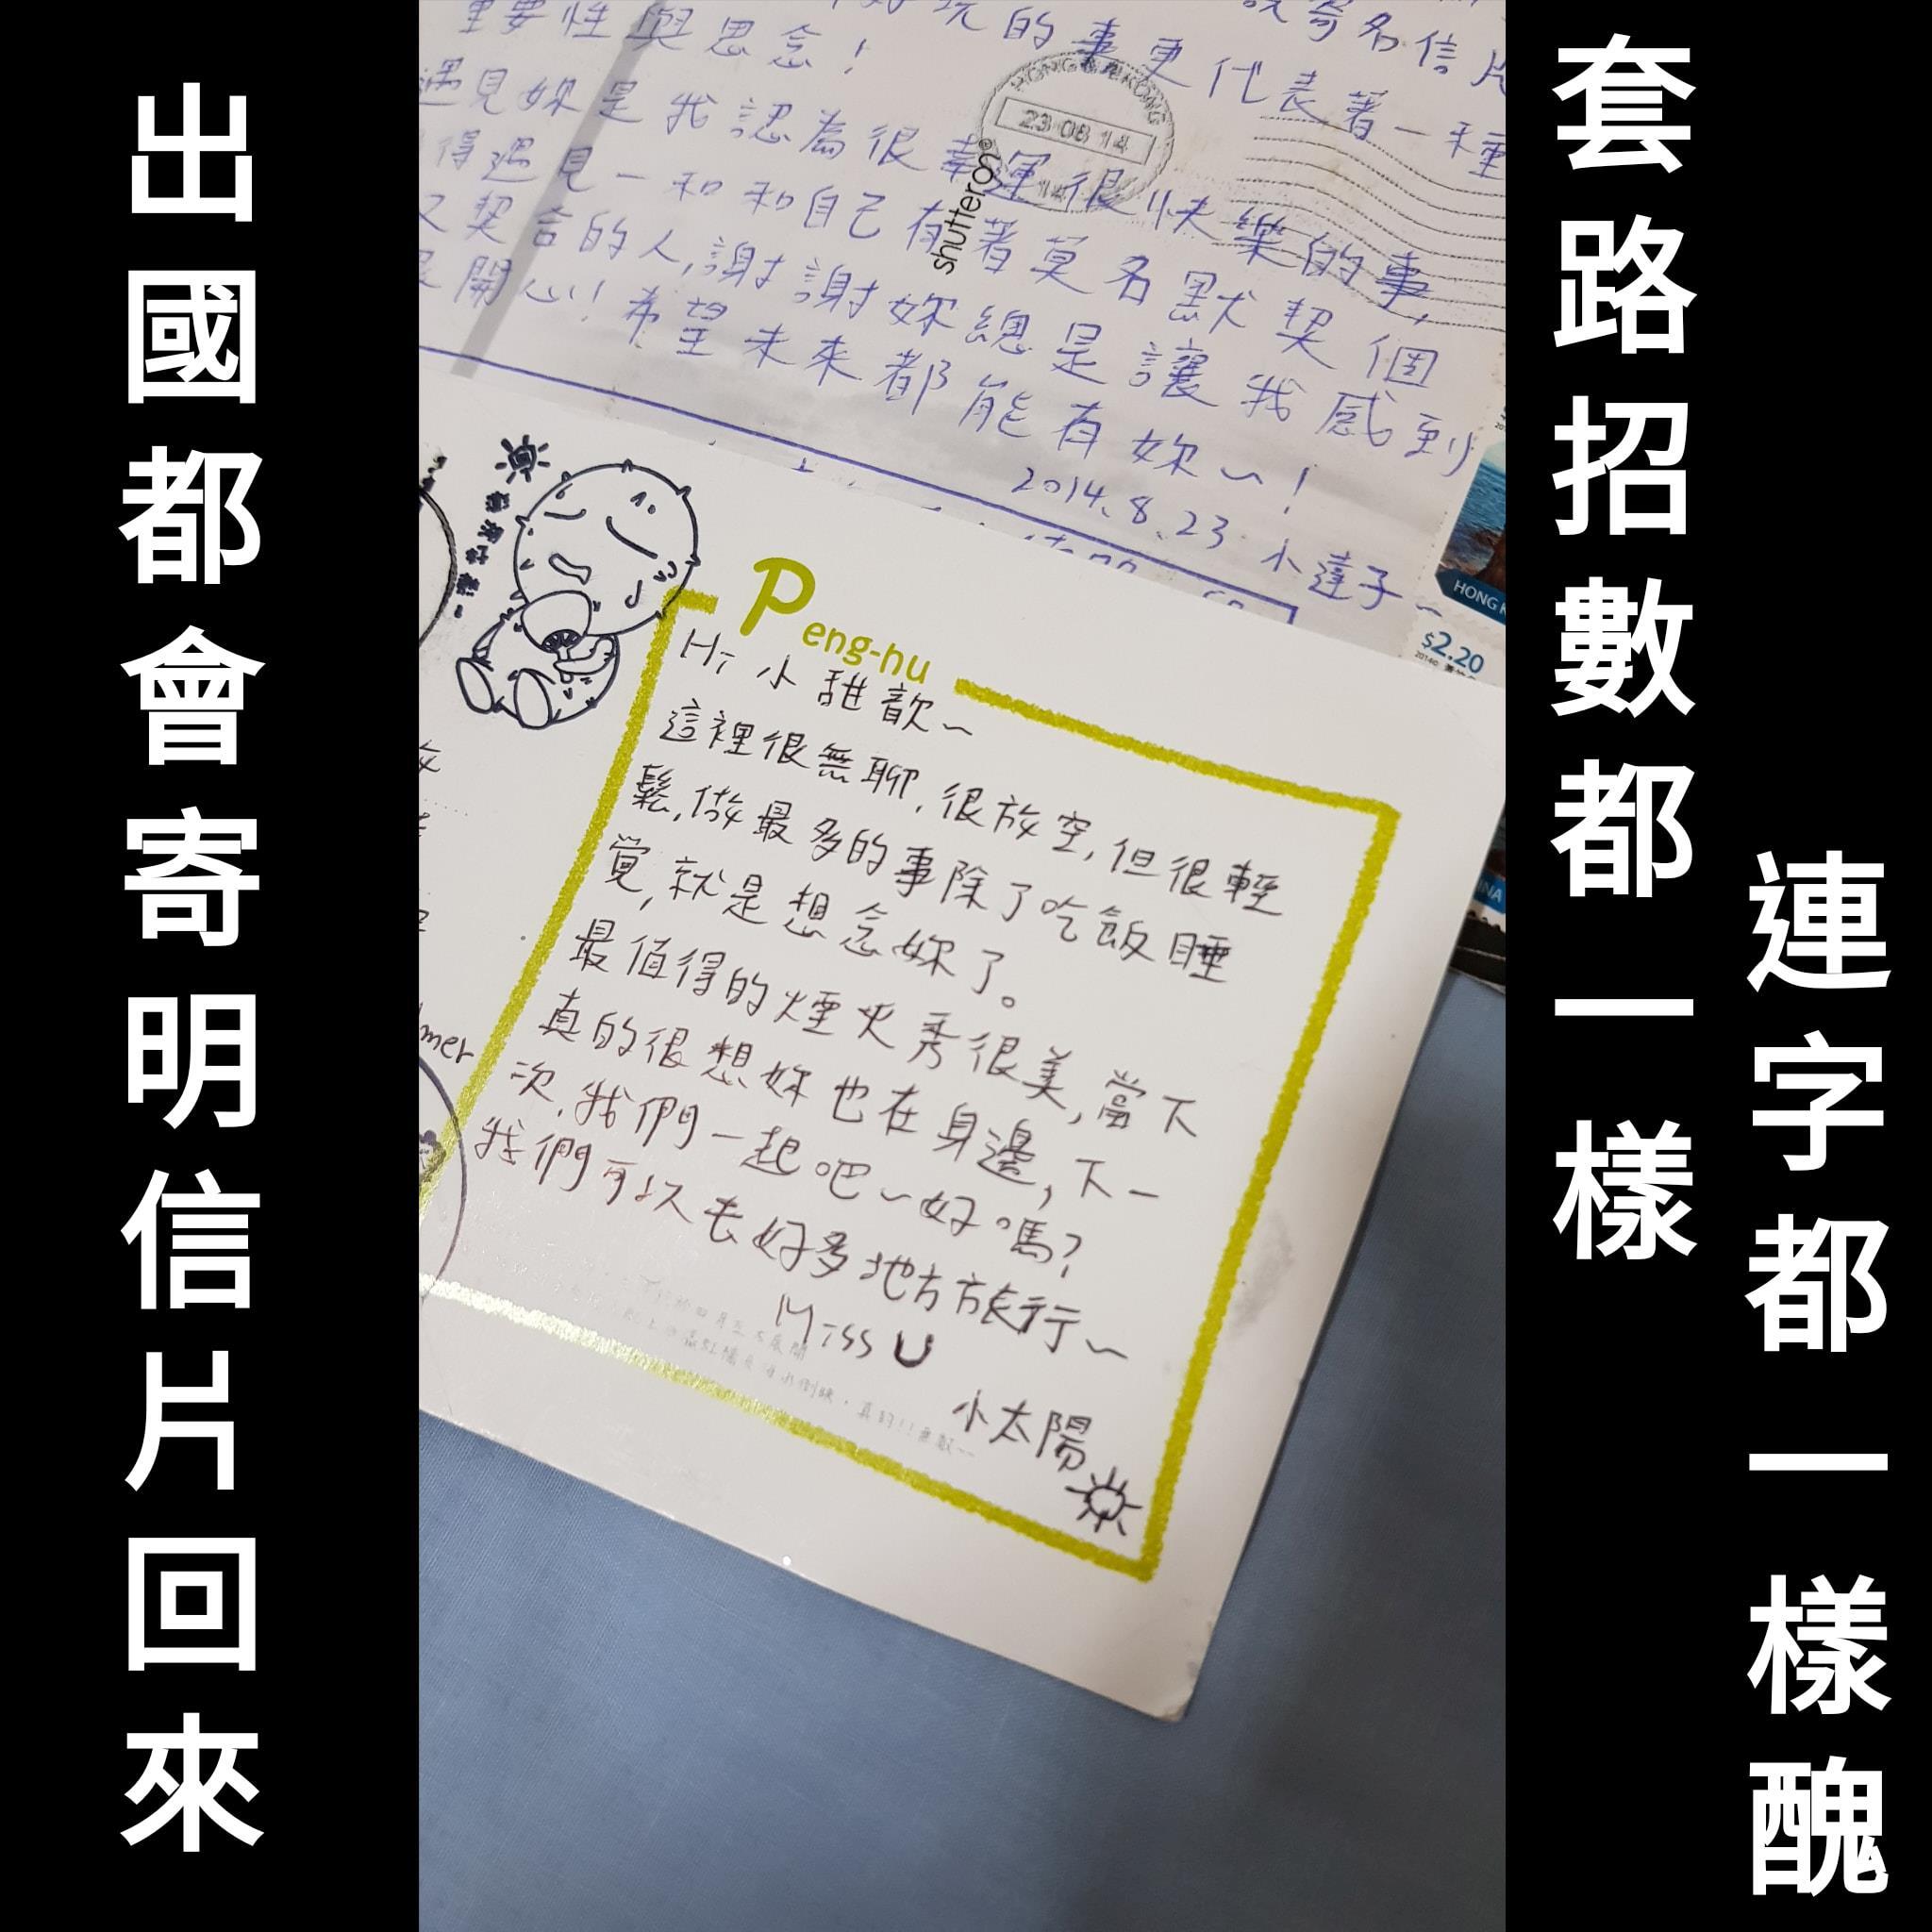 套路招數都一樣
連字都一樣醜
出國都會寄明信片回來
重要性與思念！
的事更代表著一種
遇見妳是我認為很幸運很快樂的事,
得遇見一和和自己有著莫名默契個
又契合的人,謝謝妳總是讓我感到
開心！希望未來都能有妳~！
2014.8.23 小達子~
HONG KONG
23 08 14
shutteron
HONG K
$2.20
Peng-hu
Hi 小甜歆~
這裡很無聊,很放空,但很輕
鬆,做最多的事除了吃飯睡
覺,就是想念妳了。
最值得的煙火秀很美,當下
真的很想妳也在身邊,下一
次,我們一起吧~好嗎?
我們可以去好多地方旅行~
Miss U
小太陽